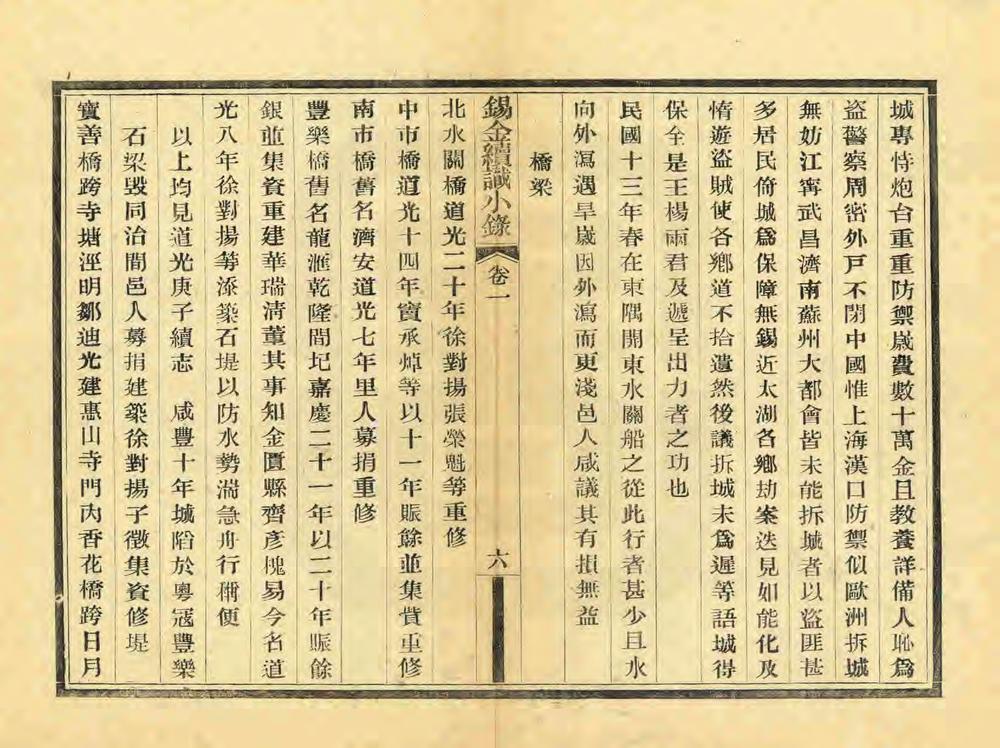 城專恃炮台重重防禦歲費數十萬金且教養詳備人恥爲
盜警察周密外戶不閉中國惟上海漢口防禦似歐洲拆城
無妨江寧武昌濟南蘇州大都會皆未能拆城者以盜匪甚
多居民倚城爲保障無錫近太湖各鄉劫案迭見如能化及
惰遊盜賊使各鄉道不拾遺然後議拆城未爲遲等語城得
保全是王楊兩君及遞呈出力者之功也
民國十三年春在東隅開東水關船之從此行者甚少且水
向外瀉遇旱歲因外瀉而更淺邑人咸議其有損無益
橋梁
錫金續識小錄
卷一
六
北水關橋道光二十年徐對揚張榮魁等重修
中市橋道光十四年竇承焯等以十一年賑餘並集貲重修
南市橋舊名濟安道光七年里人募捐重修
豐樂橋舊名龍滙乾隆間圮嘉慶二十一年以二十年賑餘
銀並集資重建華瑞清董其事知金匱縣齊彥槐易今名道
光八年徐對揚等添築石堤以防水勢湍急舟行稱便
以上均見道光庚子續志 咸豐十年城陷於粵寇豐樂
石梁毀同治間邑人募捐建築徐對揚子徵集資修堤
寶善橋跨寺塘涇明鄒迪光建惠山寺門內香花橋跨日月